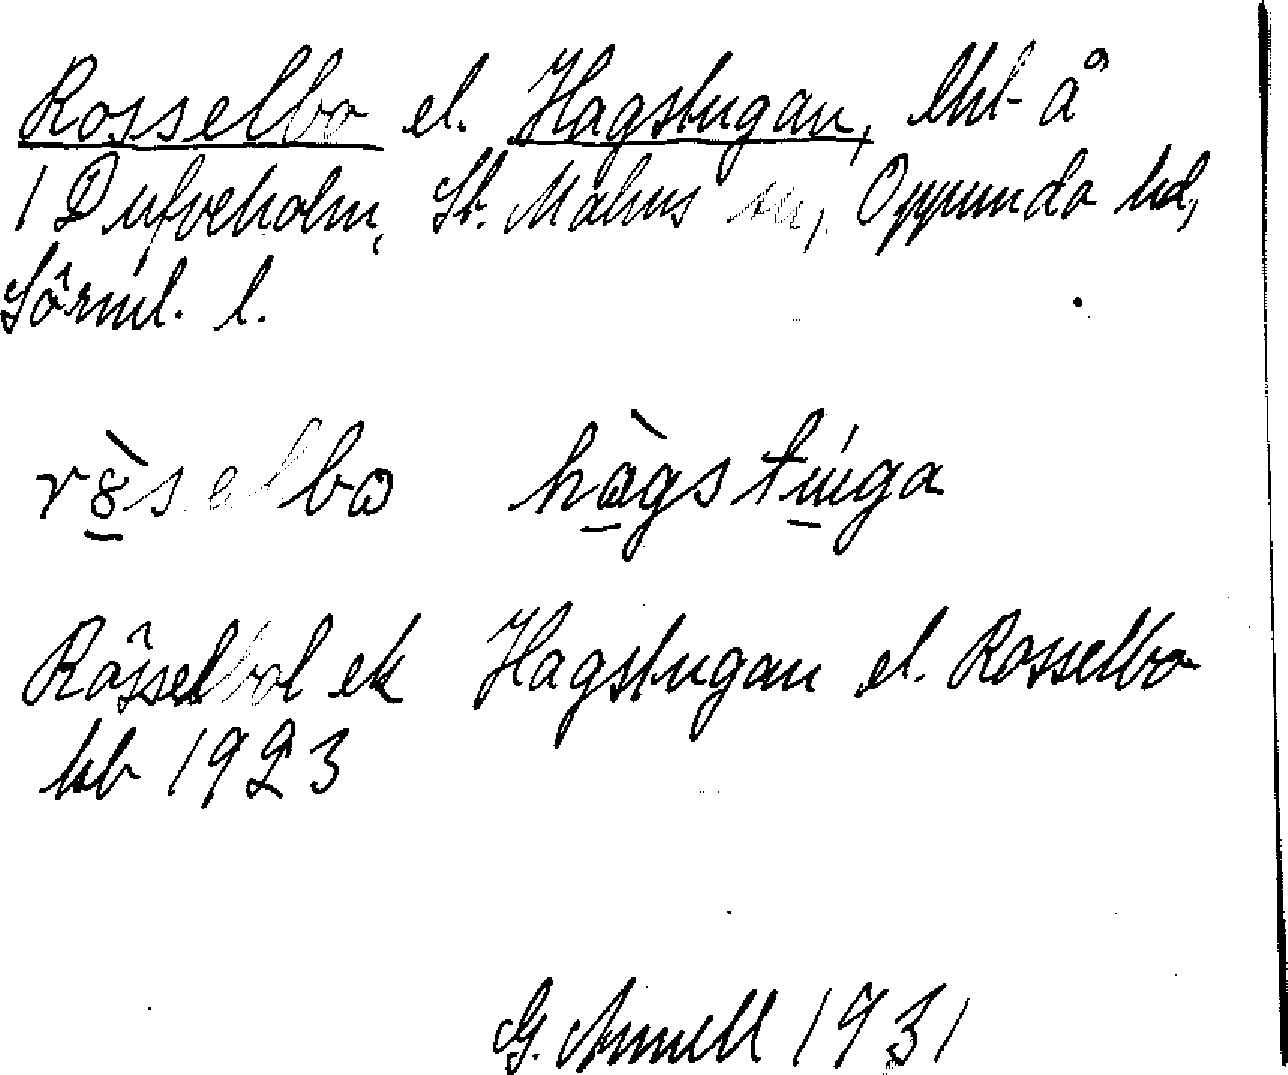 Rosselbo el. Hagstugan, lht å
1 Dufveholm, St. Malms sn, Oppunda hd,
Sörml. l.
rö̀selbo hàgstúga
Rösselbol ek Hagstugan el. Rosselbo
kb 1923
G. Annell 1931